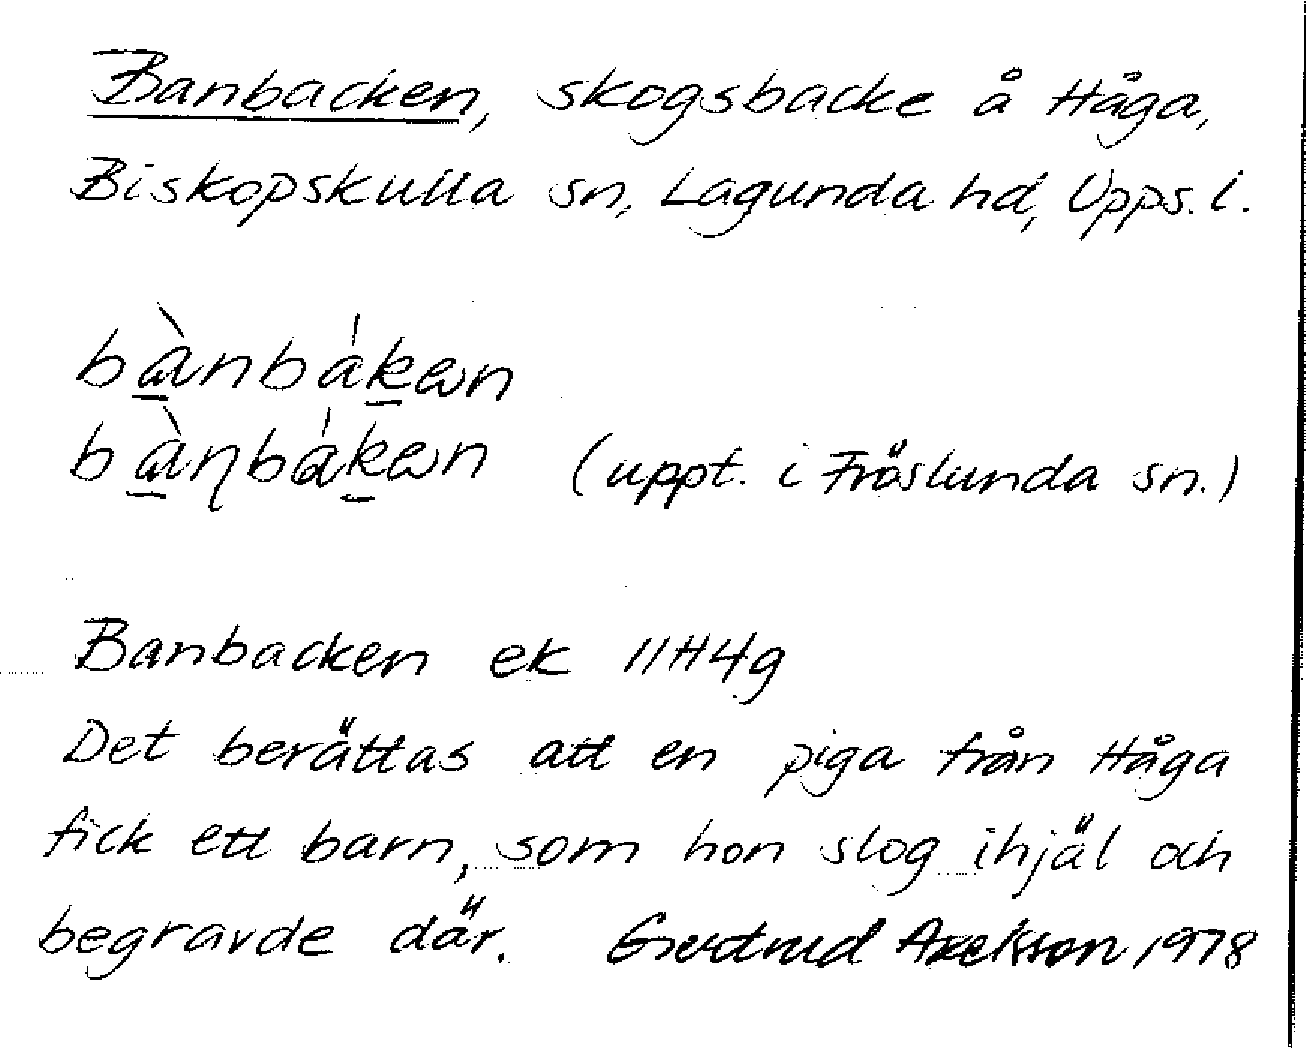 Banbacken, skogsbacke å Håga,
Biskopskulla sn, Lagunda hd, Upps. l.
bànbákən
bàɳbákən (uppt. i Fröslunda sn.)
Banbacken ek 11H4g
Det berättas att en piga från Håga
fick ett barn, som hon slog ihjäl och
begravde där. Gertrud Axelsson 1978